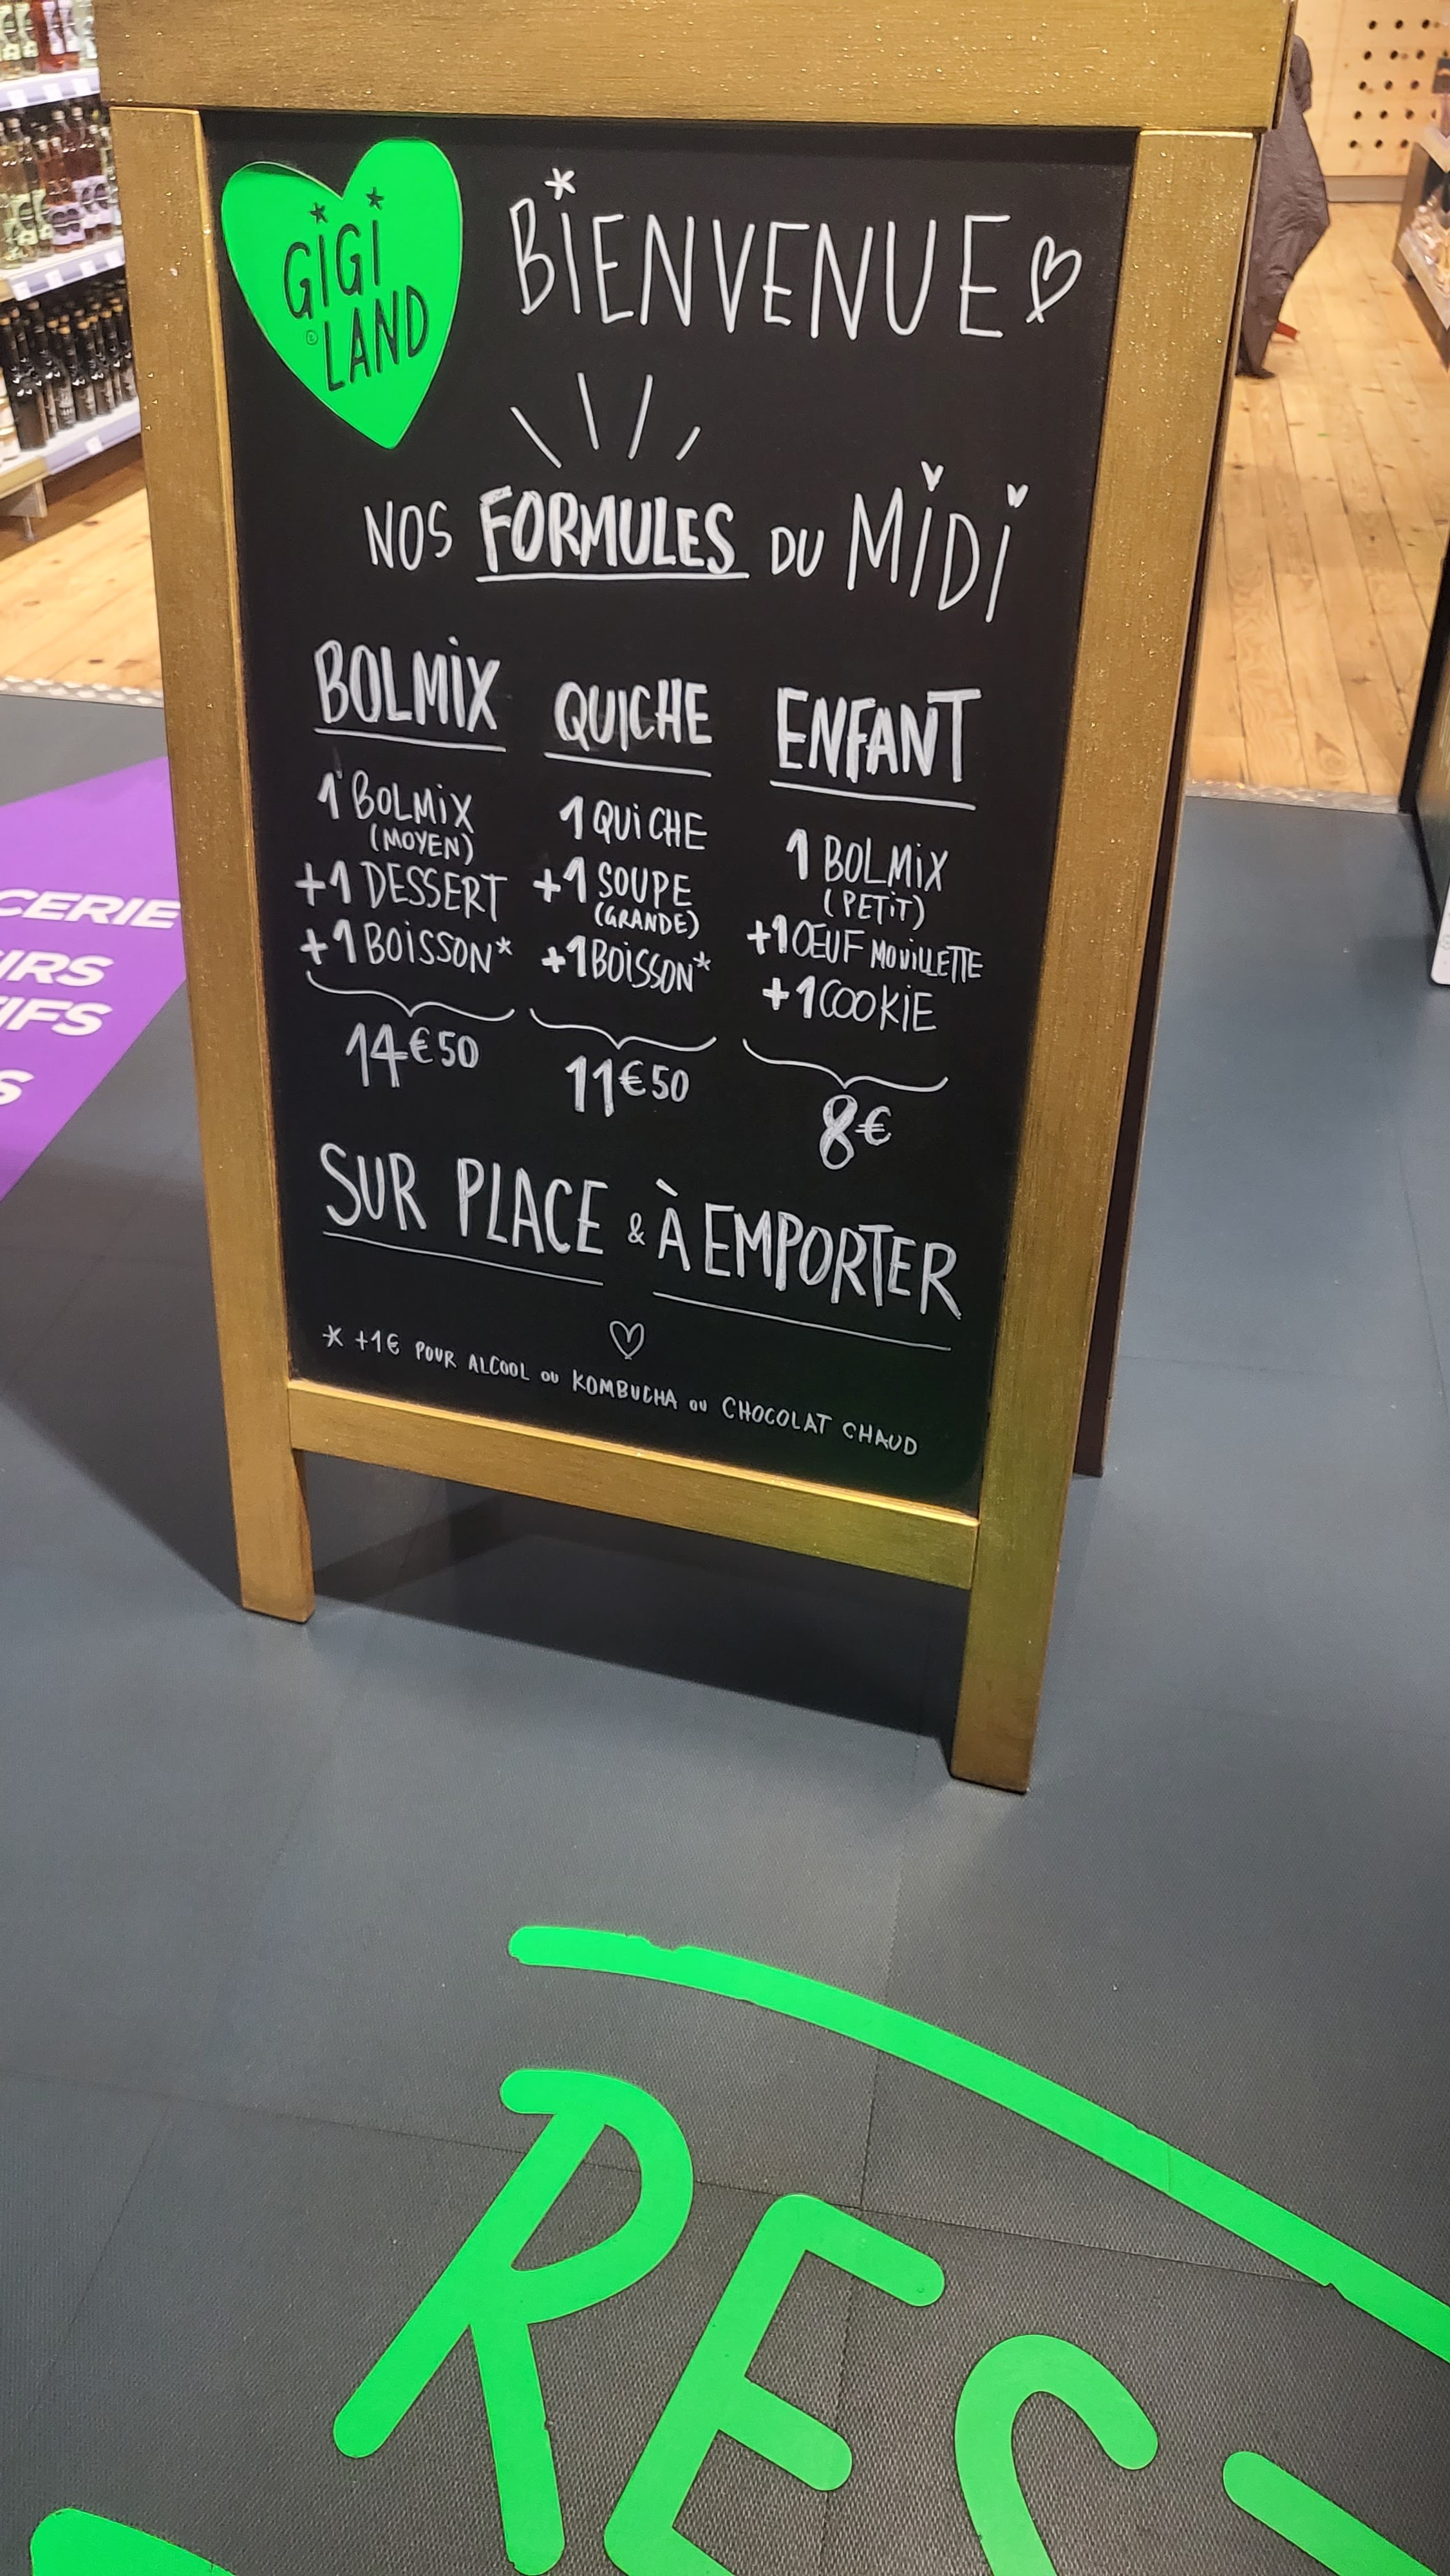 GIGI
LAND
BIENVENUE
NOS FORMULES DU MIDI
BOLMIX
1 BOLMIX
(MOYEN)
+1 DESSERT
+1 BOISSON*
14€50
QUICHE
1 QUICHE
+1 SOUPE
(GRANDE)
+1 BOISSON*
11€50
ENFANT
1 BOLMIX
(PETIT)
+1 ŒUF MOUILLETTE
+1 COOKIE
8€
SUR PLACE & À EMPORTER
* +1€ POUR ALCOOL OU KOMBUCHA OU CHOCOLAT CHAUD
CERIE
URS
IFS
S
RES